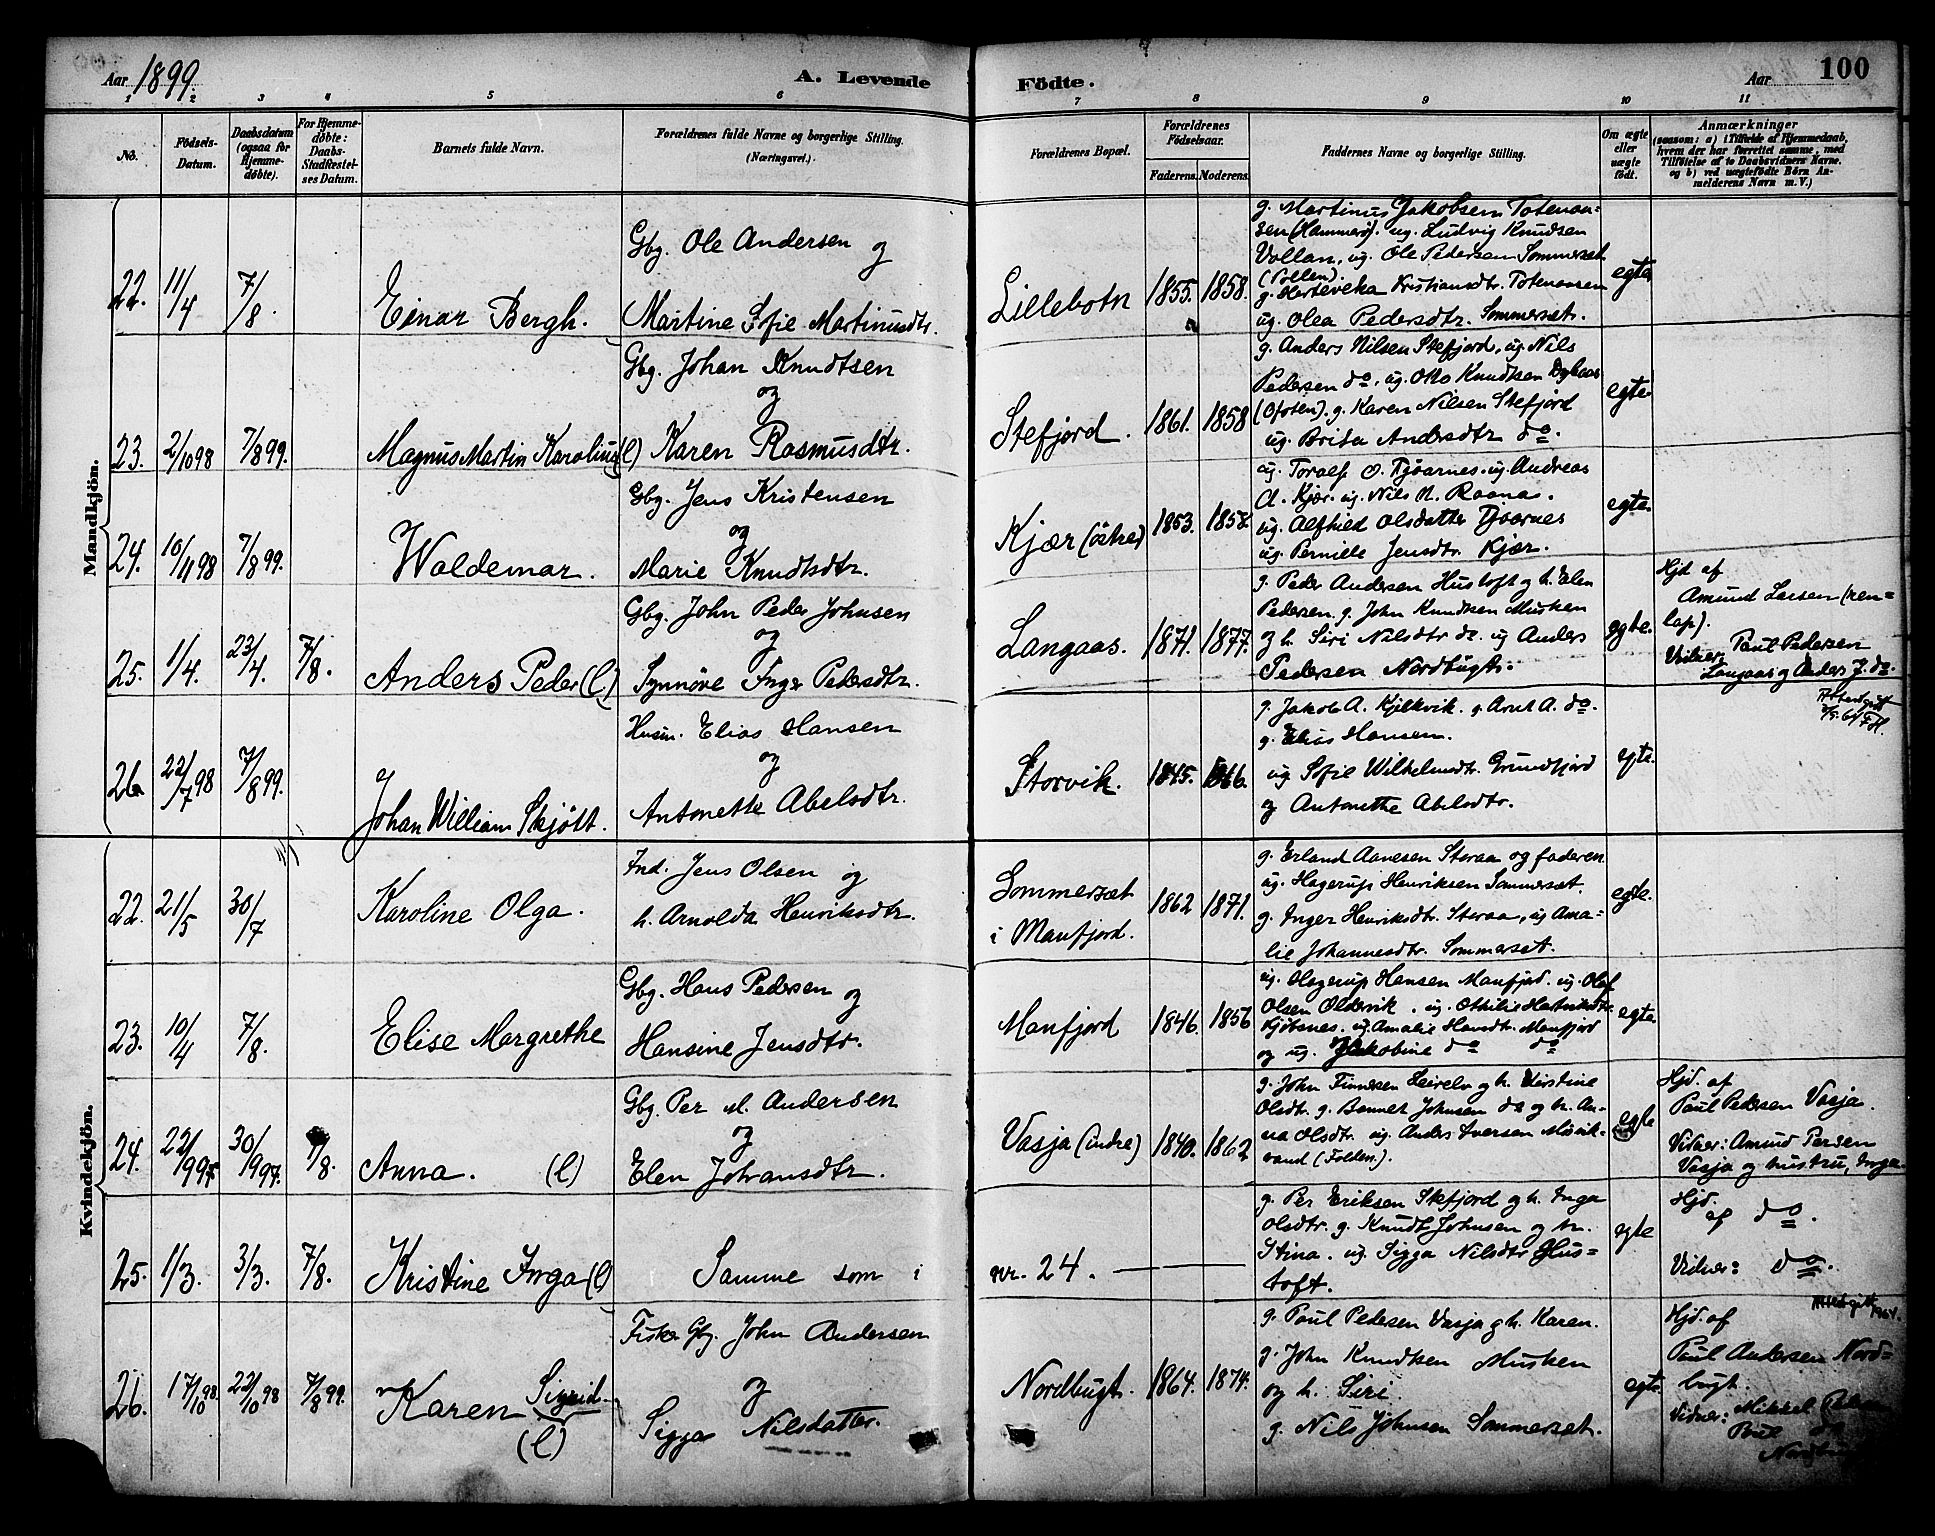 Aar 1899.
A. Levende Födte.
Aar 100
1 2 3 4 5 6 7 8 9 10 11
No.
Födsels-Datum.
Daabsdatum (ogsaa for Hjemme-døbte).
For Hjemme-døbte: Daabs-Stadfæstel-ses Datum.
Barnets fulde Navn.
Forældrenes fulde Navne og borgerlige Stilling. (Næringsvei.)
Forældrenes Bopæl.
Forældrenes Födselsaar.
Faderens. Moderens.
Faddernes Navne og borgerlige Stilling.
Om ægte eller uægte födt.
Anmærkninger
(saasom: a) i Tilfælde af Hjemmedaab,
hvem der har forrettet samme, med
Tilföielse af to Daabsvidners Navne.
og b) ved uægtefödte Börn An-
melderens Navn m. V.)
Mandkjön.
22. 11/4 7/8. Einar Bergh.
Gbg. Ole Andersen og
Martine Sofie Martinusdtr.
Lillebotn 1855. 1858.
g. Martinus Jakobsen Totenan-
sen (Hammerö). ug. Ludvig Knudsen
Vollan, ug. Ole Pedersen Sommerset
g. Kristiansdtr. Totenansen
ug. Olea Pedersdtr. Sommerset.
egte
23. 2/10 98 7/8 99. Magnus Martin Karolius (l)
Gbg. Johan Knudtsen
og
Karen Rasmusdtr.
Stefjord. 1861. 1858
g. Anders Nilsen Stefjord, ug. Nils
Pedersen do, ug. Otto Knudtsen
(Ofoten). g. Karen Nilsen Stefjord
ug. Brita Andersdtr do.
egte
24. 10/11 98 7/8 99. Waldemar.
Gbg. Jens Kristensen
og
Marie Knudtsdtr.
Kjær (östre) 1853. 1858.
ug. Toralf O. Tjöarnes. ug. Andreas
A. Kjær. ug. Nils N. Raana.
ug. Alfhild Olsdatter Tjöarnes
ug. Pernille Jensdtr. Kjær.
egte
25. 1/4. 23/4. 7/8. Anders Peder (l)
Gbg. John Peder Johnsen
og
Synnöve Inger Pedersdtr.
Langaas. 1871. 1877.
g. Peder Andersen Hustoft og h. Elen
Pedersen. g. John Knudsen Musken
og h. Siri Nilsdtr do. ug Anders
Pedersen Nordbugt.
egte.
Hjd af
Amund Larsen (ren-
lap).
Vidner: Paul Pedersen
Langaas og Anders J. do.
26. 22/7 98 7/8 99. Johan William Skjött.
Husm. Elias Hansen
og
Antonette Abelsdtr.
Storvik. 1845. 1866.
g. Jakob A. Kjelkvik. g. Arnt A. do.
g. Elias Hansen.
ug Sofie Wilhelmsdtr. Grundfjord
og Antonethe Abelsdtr.
egte.
Kvindekjön.
22. 21/5 30/7 Karoline Olga.
Ind. Jens Olsen og
h. Arnolda Henriksdtr.
Sommerset
i Manfjord.
1862 1871.
g. Erland Aanesen Storaa og faderen
ug. Hagerup Henriksen Sommerset.
g. Inger Henriksdtr. Storaa, ug Ama-
lie Johannesdtr. Sommerset.
egte.
23. 10/4 7/8. Elise Margrethe
Gbg. Hans Pedersen og
Hansine Jensdtr.
Manfjord 1846. 1856
ug. Hagerup Hansen Manfjord. ug. Olaf
Olsen Oldervik. ug. Othilie Hartviksdtr.
Kjöbsnes. ug. Amalie Hansdtr. Manfjord
og ug. Jakobine do do
egte
24. 22/9 95 30/1 97. 7/8. Anna. (l)
Gbg. Per M. Andersen
og
Elen Johansdtr.
Vasja (indre) 1840. 1862
g. John Finnesen Leirelv og h. Kirstine
Olsdtr. g. Bonnet Johnsen do og h. An-
na Olsdtr. ug. Anders Iversen Mövik-
vand (Folden).
egte
Hjd. af
Paul Pedersen Vasja.
Vidner: Amund Persen
Vasja og hustru, Inga.
25. 1/3. 3/3. 7/8. Kristine Inga (l)
Samme som i nr. 24.
g. Per Eriksen Stefjord og h. Inga
Olsdtr. g. Knudt Johnsen og h.
Stina. ug. Sigga Nilsdtr Hus-
toft.
egte
Hjd. af do.
Vidner: do.
26. 17/10 98. 22/10 98 7/8 99. Karen Sigrid. (l)
Fisker Gbg. John Andersen
og
Sigga Nilsdatter.
Nordbugt. 1864. 1874.
g. Paul Pedersen Vasja og h. Karen.
g. John Knudtsen Musken
og h. Siri
g. Nils Johnsen Sommerset.
egte
Hjd. af
Paul Andersen Nord-
bugt.
Vidner: Mikkel
Paul do